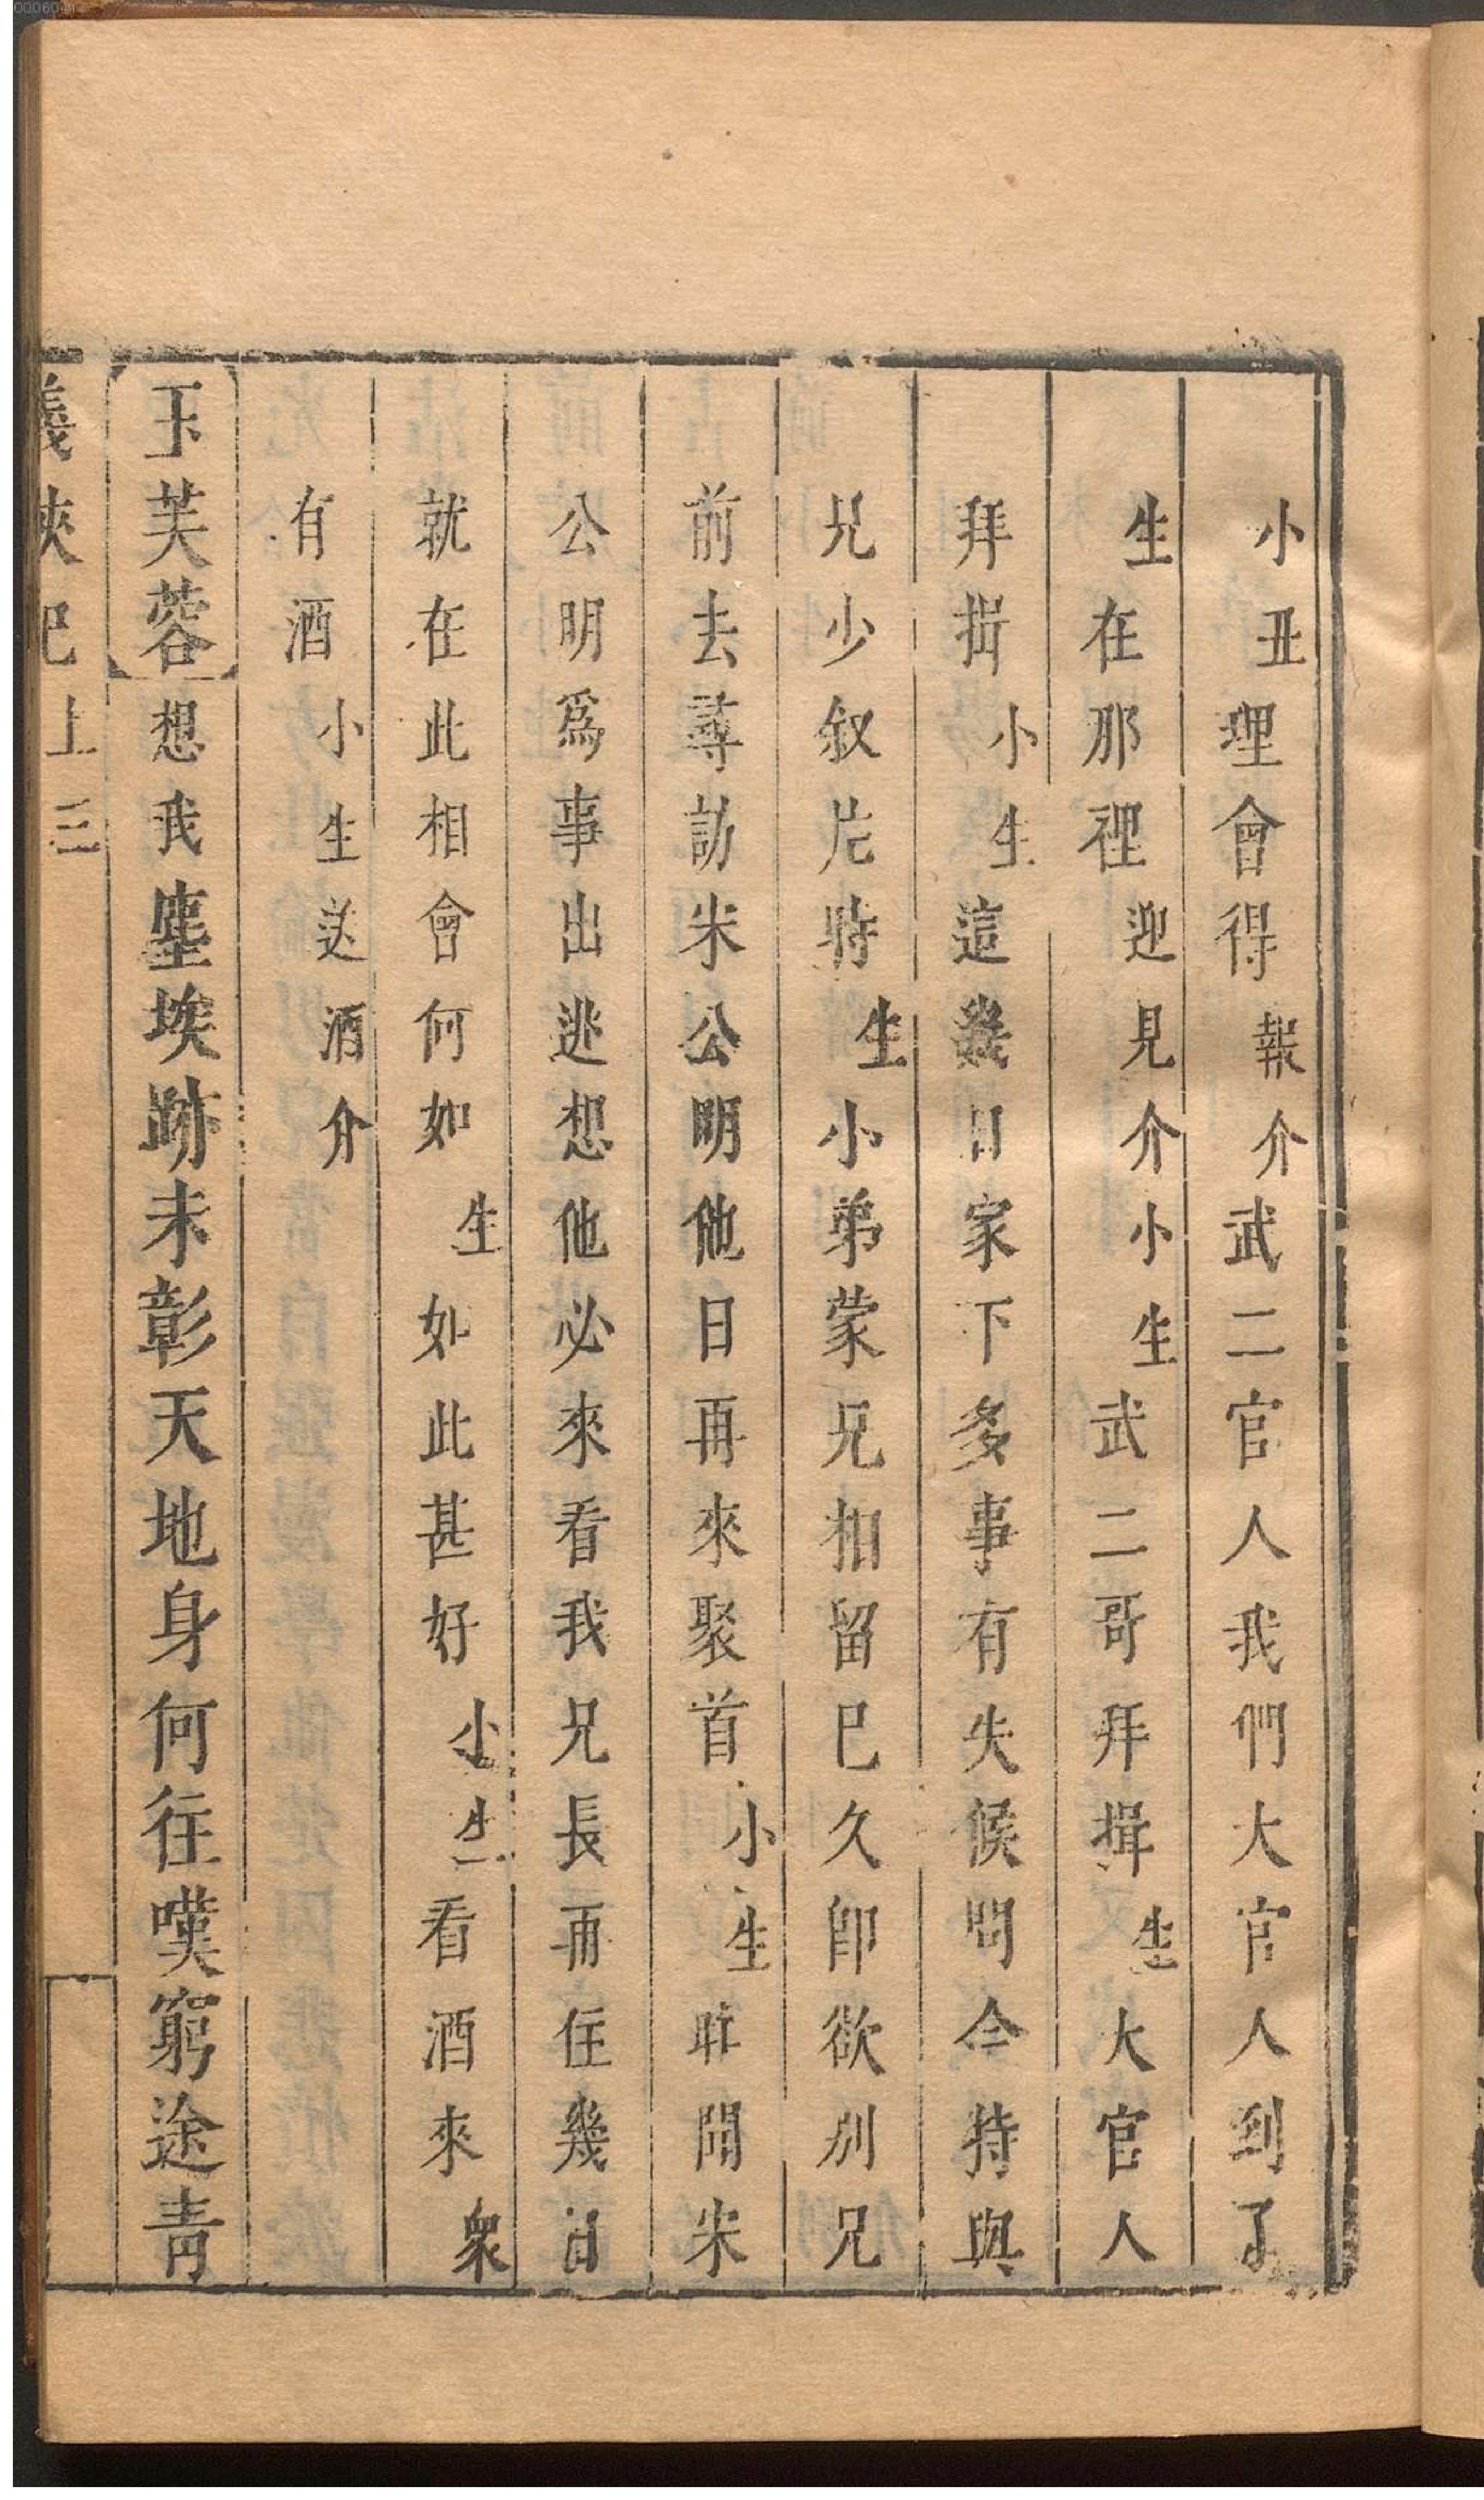 小丑理會得報介武二官人我們大官人到了
生在那裡迎見介小生武二哥拜揖生大官人
拜揖小生這幾日家下多事有失候問今特與
兄少叙片時生小弟蒙兄相留已久即欲別兄
前去尋訪宋公明他日再來聚首小生昨聞宋
公明爲事出逃想他必來看我兄長再住幾日
就在此相會何如生如此甚好小生看酒來衆
有酒小生送酒介
玉芙蓉想我塵埃跡未彰天地身何往嘆窮途青
義俠記上三